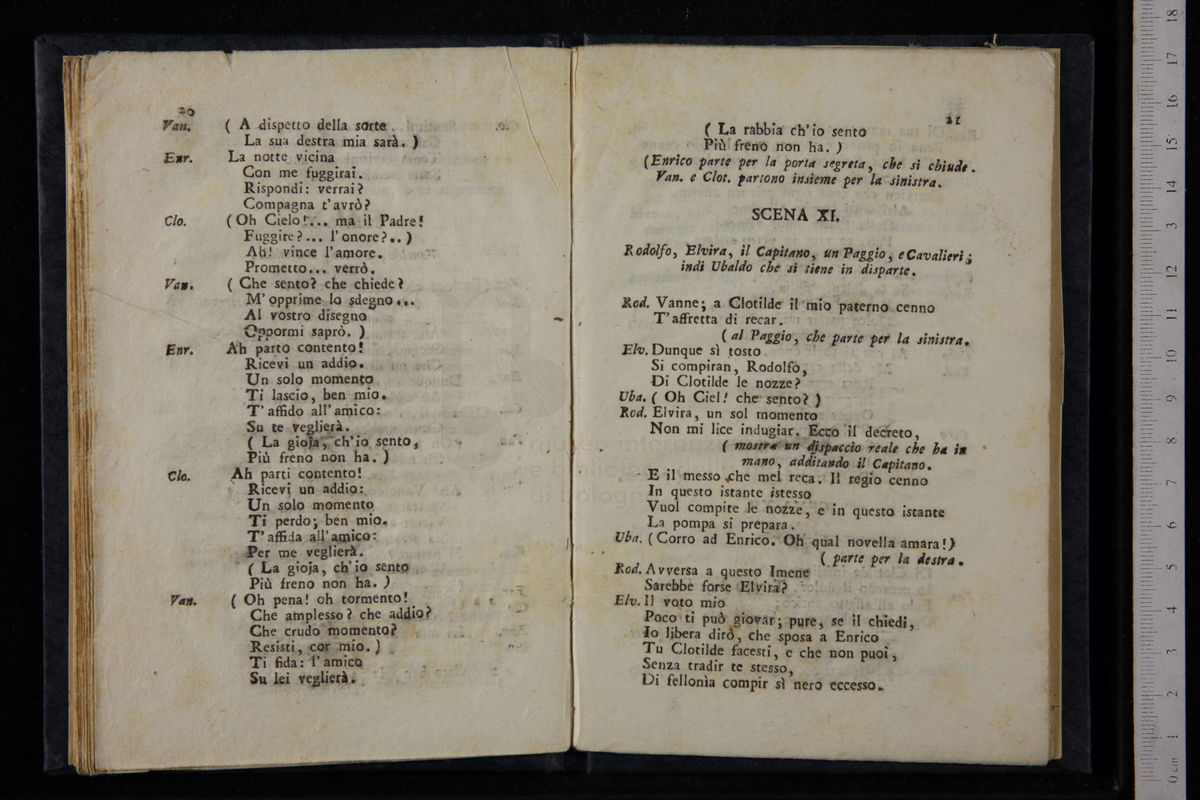 20
Van. ( A dispetto della sorte
La sua destra mia sarà. )
Enr. La notte vicina
Con me fuggirai.
Rispondi: verrai?
Compagna t'avrò?
Clo. (Oh Cielo!... ma il Padre!
Fuggire?... l'onore?..)
Ah! vince l'amore.
Prometto... verrò.
Van. ( Che sento? che chiede?
M'opprime lo sdegno...
Al vostro disegno
Oppormi saprò. )
Enr. Ah parto contento!
Ricevi un addio.
Un solo momento
Ti lascio, ben mio.
T'affido all'amico:
Su te veglierà.
( La gioja, ch'io sento,
Più freno non ha. )
Clo. Ah parti contento!
Ricevi un addio:
Un solo momento
Ti perdo; ben mio.
T'affida all'amico:
Per me veglierà.
( La gioja, ch'io sento
Più freno non ha. )
Van. ( Oh pena! oh tormento!
Che amplesso? che addio?
Che crudo momento?
Resisti, cor mio. )
Ti fida: l'amico
Su lei veglierà.
21
( La rabbia ch'io sento
Più freno non ha. )
(Enrico parte per la porta segreta, che si chiude.
Van. e Clot. partono insieme per la sinistra.
SCENA XI.
Rodolfo, Elvira, il Capitano, un Paggio, e Cavalieri;
indi Ubaldo che si tiene in disparte.
Rod. Vanne; a Clotilde il mio paterno cenno
T'affretta di recar.
( al Paggio, che parte per la sinistra.
Elv. Dunque sì tosto
Si compiran, Rodolfo,
Di Clotilde le nozze?
Uba. ( Oh Ciel! che sento? )
Rod. Elvira, un sol momento
Non mi lice indugiar. Ecco il decreto,
( mostra un dispaccio reale che ha in
mano, additando il Capitano.
E il messo che mel reca. Il regio cenno
In questo istante istesso
Vuol compite le nozze, e in questo istante
La pompa si prepara.
Uba. (Corro ad Enrico. Oh qual novella amara!)
( parte per la destra.
Rod. Avversa a questo Imene
Sarebbe forse Elvira?
Elv. Il voto mio
Poco ti può giovar; pure, se il chiedi,
Io libera dirò, che sposa a Enrico
Tu Clotilde facesti, e che non puoi,
Senza tradir te stesso,
Di fellonìa compir sì nero eccesso.